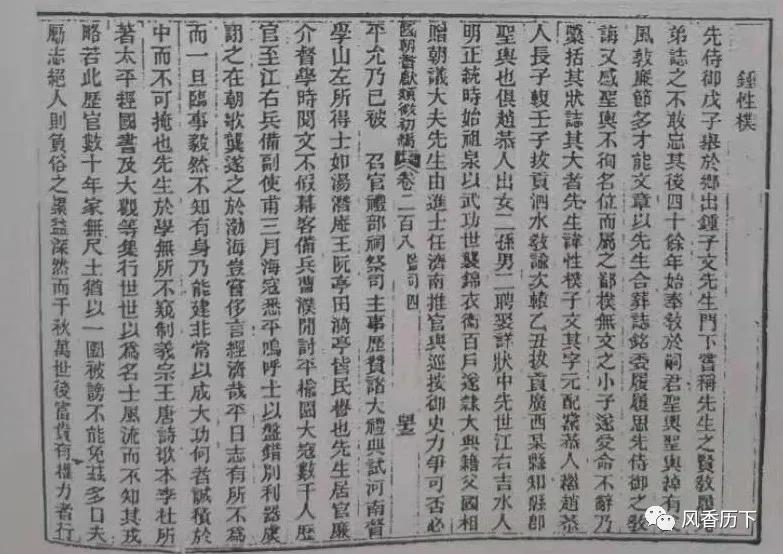 鍾性樸
先侍御戊子舉於鄉出鍾子文先生門下嘗稱先生之賢敎履
弟誌之不敢忘其後四十餘年始奉敎於嗣君聖輿聖輿掉有
風敦廉節多才能文章以先生合葬誌銘委履履思先侍御之敎
誨又感聖輿不徇名位而屬之鄙樸無文之小子遂愛命不辭乃
櫽括其狀誌其大者先生諱性樸子文其字元配恭人繼趙恭
人長子壬子拔貢泗水敎諭次轅乙丑拔貢廣西某縣知縣卽
聖輿也俱趙恭人出女二孫男二聘娶詳狀中先世江右吉水人
明正統時始祖泉以武功世襲錦衣衛百戶遂隸大興籍父國相
贈朝議大夫先生由進士任濟南推官與巡按御史力爭可否必
國朝耆獻類徵初編 卷二百八 監司四
平允乃已被 召官禮部祠祭司主事歷贊諸大禮典試河南督
學山左所得士如湯潛庵王阮亭田漪亭皆民譽也先生居官廉
介督學時閱文不假幕客備兵曹濮閒討平榆園大寇數千人歷
官至江右兵備副使甫三月海寇悉平嗚呼士以盤錯別利器虞
詡之在朝歌龔遂之於渤海豈嘗侈言經濟哉平日志有所不爲
而一旦臨事毅然不知有身乃能建非常以成大功何者誠積於
中而不可掩也先生於學無所不窺制義宗王唐詩歌本李杜所
著太平經國書及大觀等集行世世以爲名士風流而不知其戎
略若此歷官數十年家無尺土猶以一園被謗不能免茲多口夫
厲志絕人則負俗之累益深然而千秋萬世後富貴有權力者行
风香历下